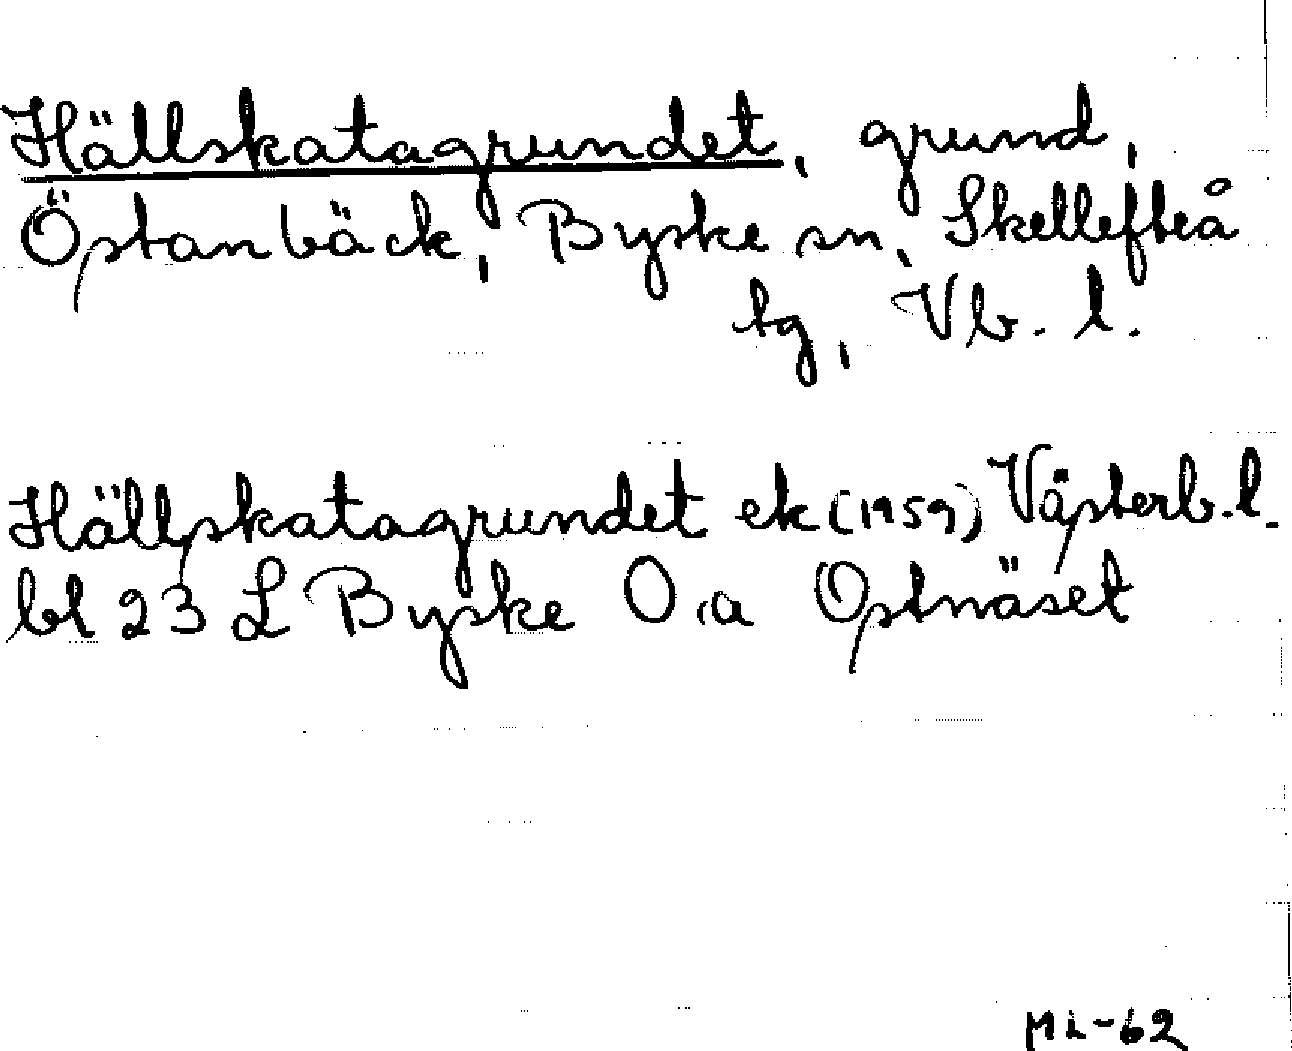 Hällskatagrundet, grund,
Östanbäck, Byske sn, Skellefteå
tg, Vb. l.
Hällskatagrundet ek (1959) Västerb. l.
bl 23 L Byske O ca Ostnäset
ML-62